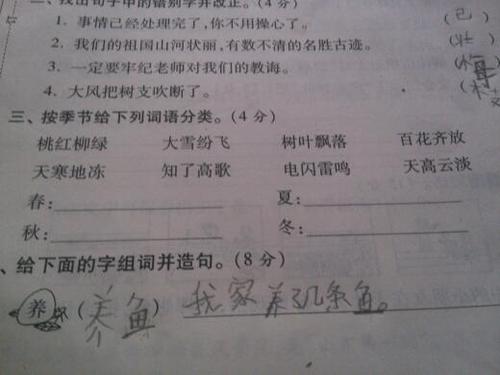 二、找出句子中的错别字并改正。(4分)
1. 事情己经处理完了,你不用操心了。 (已)
2. 我们的祖国山河状丽,有数不清的名胜古迹。 (壮)
3. 一定要牢纪老师对我们的教诲。
4. 大风把树支吹断了。 (枝)
三、按季节给下列词语分类。(4分)
桃红柳绿 大雪纷飞 树叶飘落 百花齐放
天寒地冻 知了高歌 电闪雷鸣 天高云淡
春: 夏:
秋: 冬:
、给下面的字组词并造句。(8分)
养 (养鱼) 我家养了几条鱼。